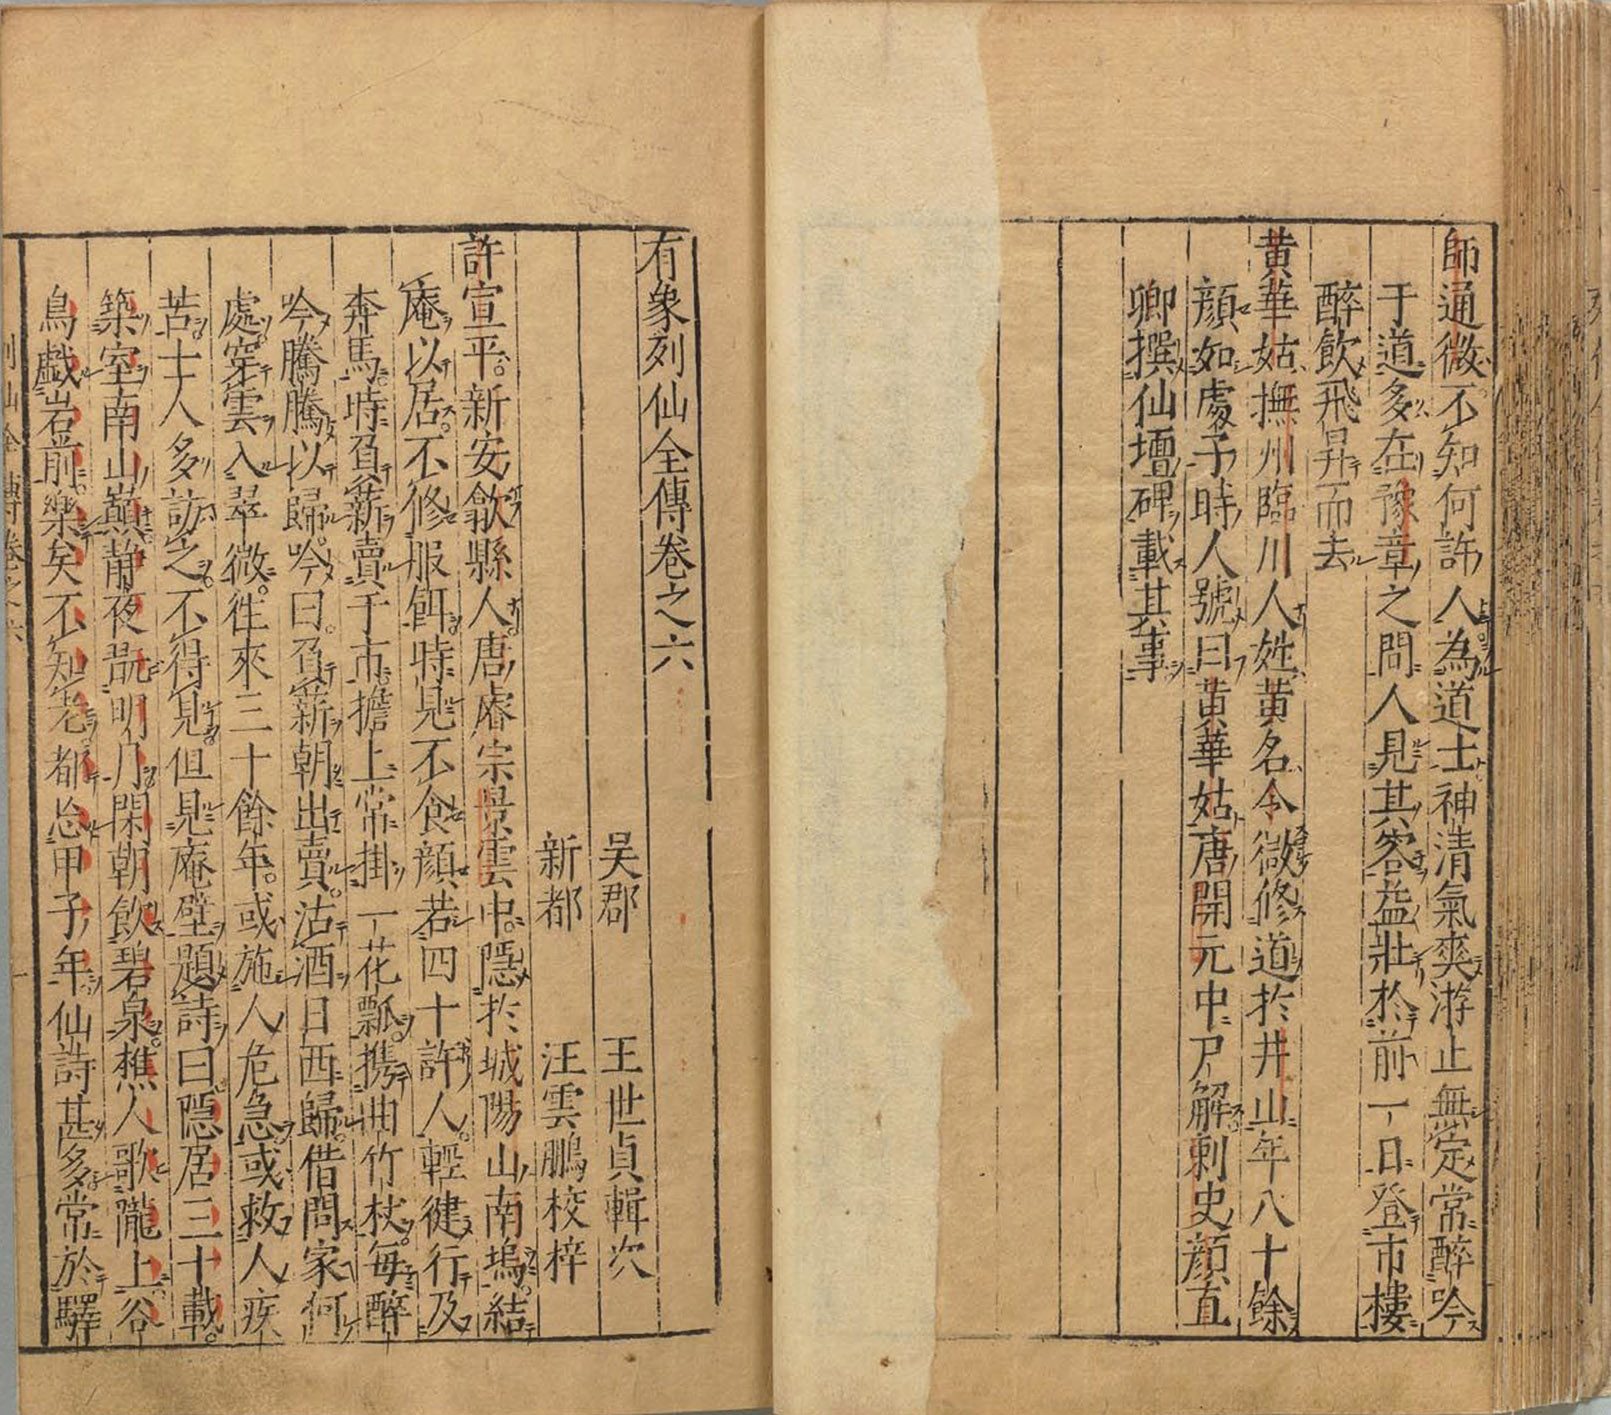 師通微不知何許人為道士神清氣爽游止無定常醉吟
于道多在豫章之間人見其容益壯於前一日登市樓
醉飲飛昇而去
黃華姑撫州臨川人姓黃名令微修道於井山年八十餘
顏如處子時人號曰黃華姑唐開元中尸解刺史顏真
卿撰仙壇碑載其事
有象列仙全傳卷之六
吳郡 王世貞輯次
新都 汪雲鵬校梓
許宣平新安歙縣人唐睿宗景雲中隱於城陽山南塢結
庵以居不修服餌時見不食顏若四十許人輕健行及
奔馬時負薪賣于市擔上常掛一花瓢携曲竹杖每醉
吟騰騰以歸吟曰負薪朝出賣沽酒日西歸借問家何
處穿雲入翠微往來三十餘年或施人危急或救人疾
苦士人多訪之不得見但見庵壁題詩曰隱居三十載
築室南山巔靜夜翫明月閑朝飲碧泉樵人歌隴上谷
鳥戲岩前樂矣不知老都忘甲子年仙詩甚多常於驛